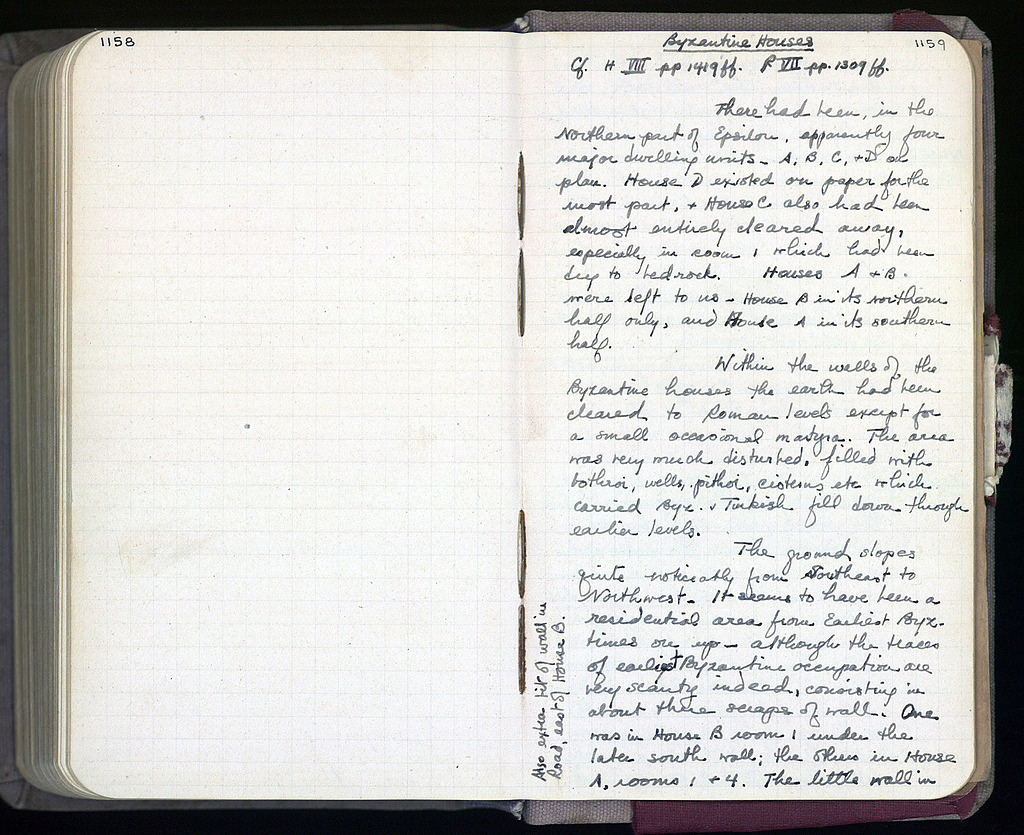 1158
1159
Byzantine Houses
Cf. H VIII pp 1419 ff. P VII pp. 1309 ff.
There had been, in the
Northern part of Epsilon, apparently four
major dwelling units - A, B, C, + D on
plan. House D existed on paper for the
most part, + House C also had been
almost entirely cleared away,
especially in room 1 which had been
dug to bedrock. Houses A + B.
were left to us - House B in its northern
half only, and House A in its southern
half.
Within the walls of the
Byzantine houses the earth had been
cleared to Roman levels except for
a small occasional martyra. The area
was very much disturbed, filled with
bothroi, wells, pithoi, cisterns etc which
carried Byz. + Turkish fill down through
earlier levels.
The ground slopes
quite noticeably from Southeast to
Northwest. It seems to have been a
residential area from Earliest Byz.
times on up - although the traces
of earliest Byzantine occupation are
very scanty indeed, consisting in
about three scraps of wall. One
was in House B room 1 under the
later south wall; the others in House
A, rooms 1 + 4. The little wall in
Also extra bit of wall in
Road, east of House B.